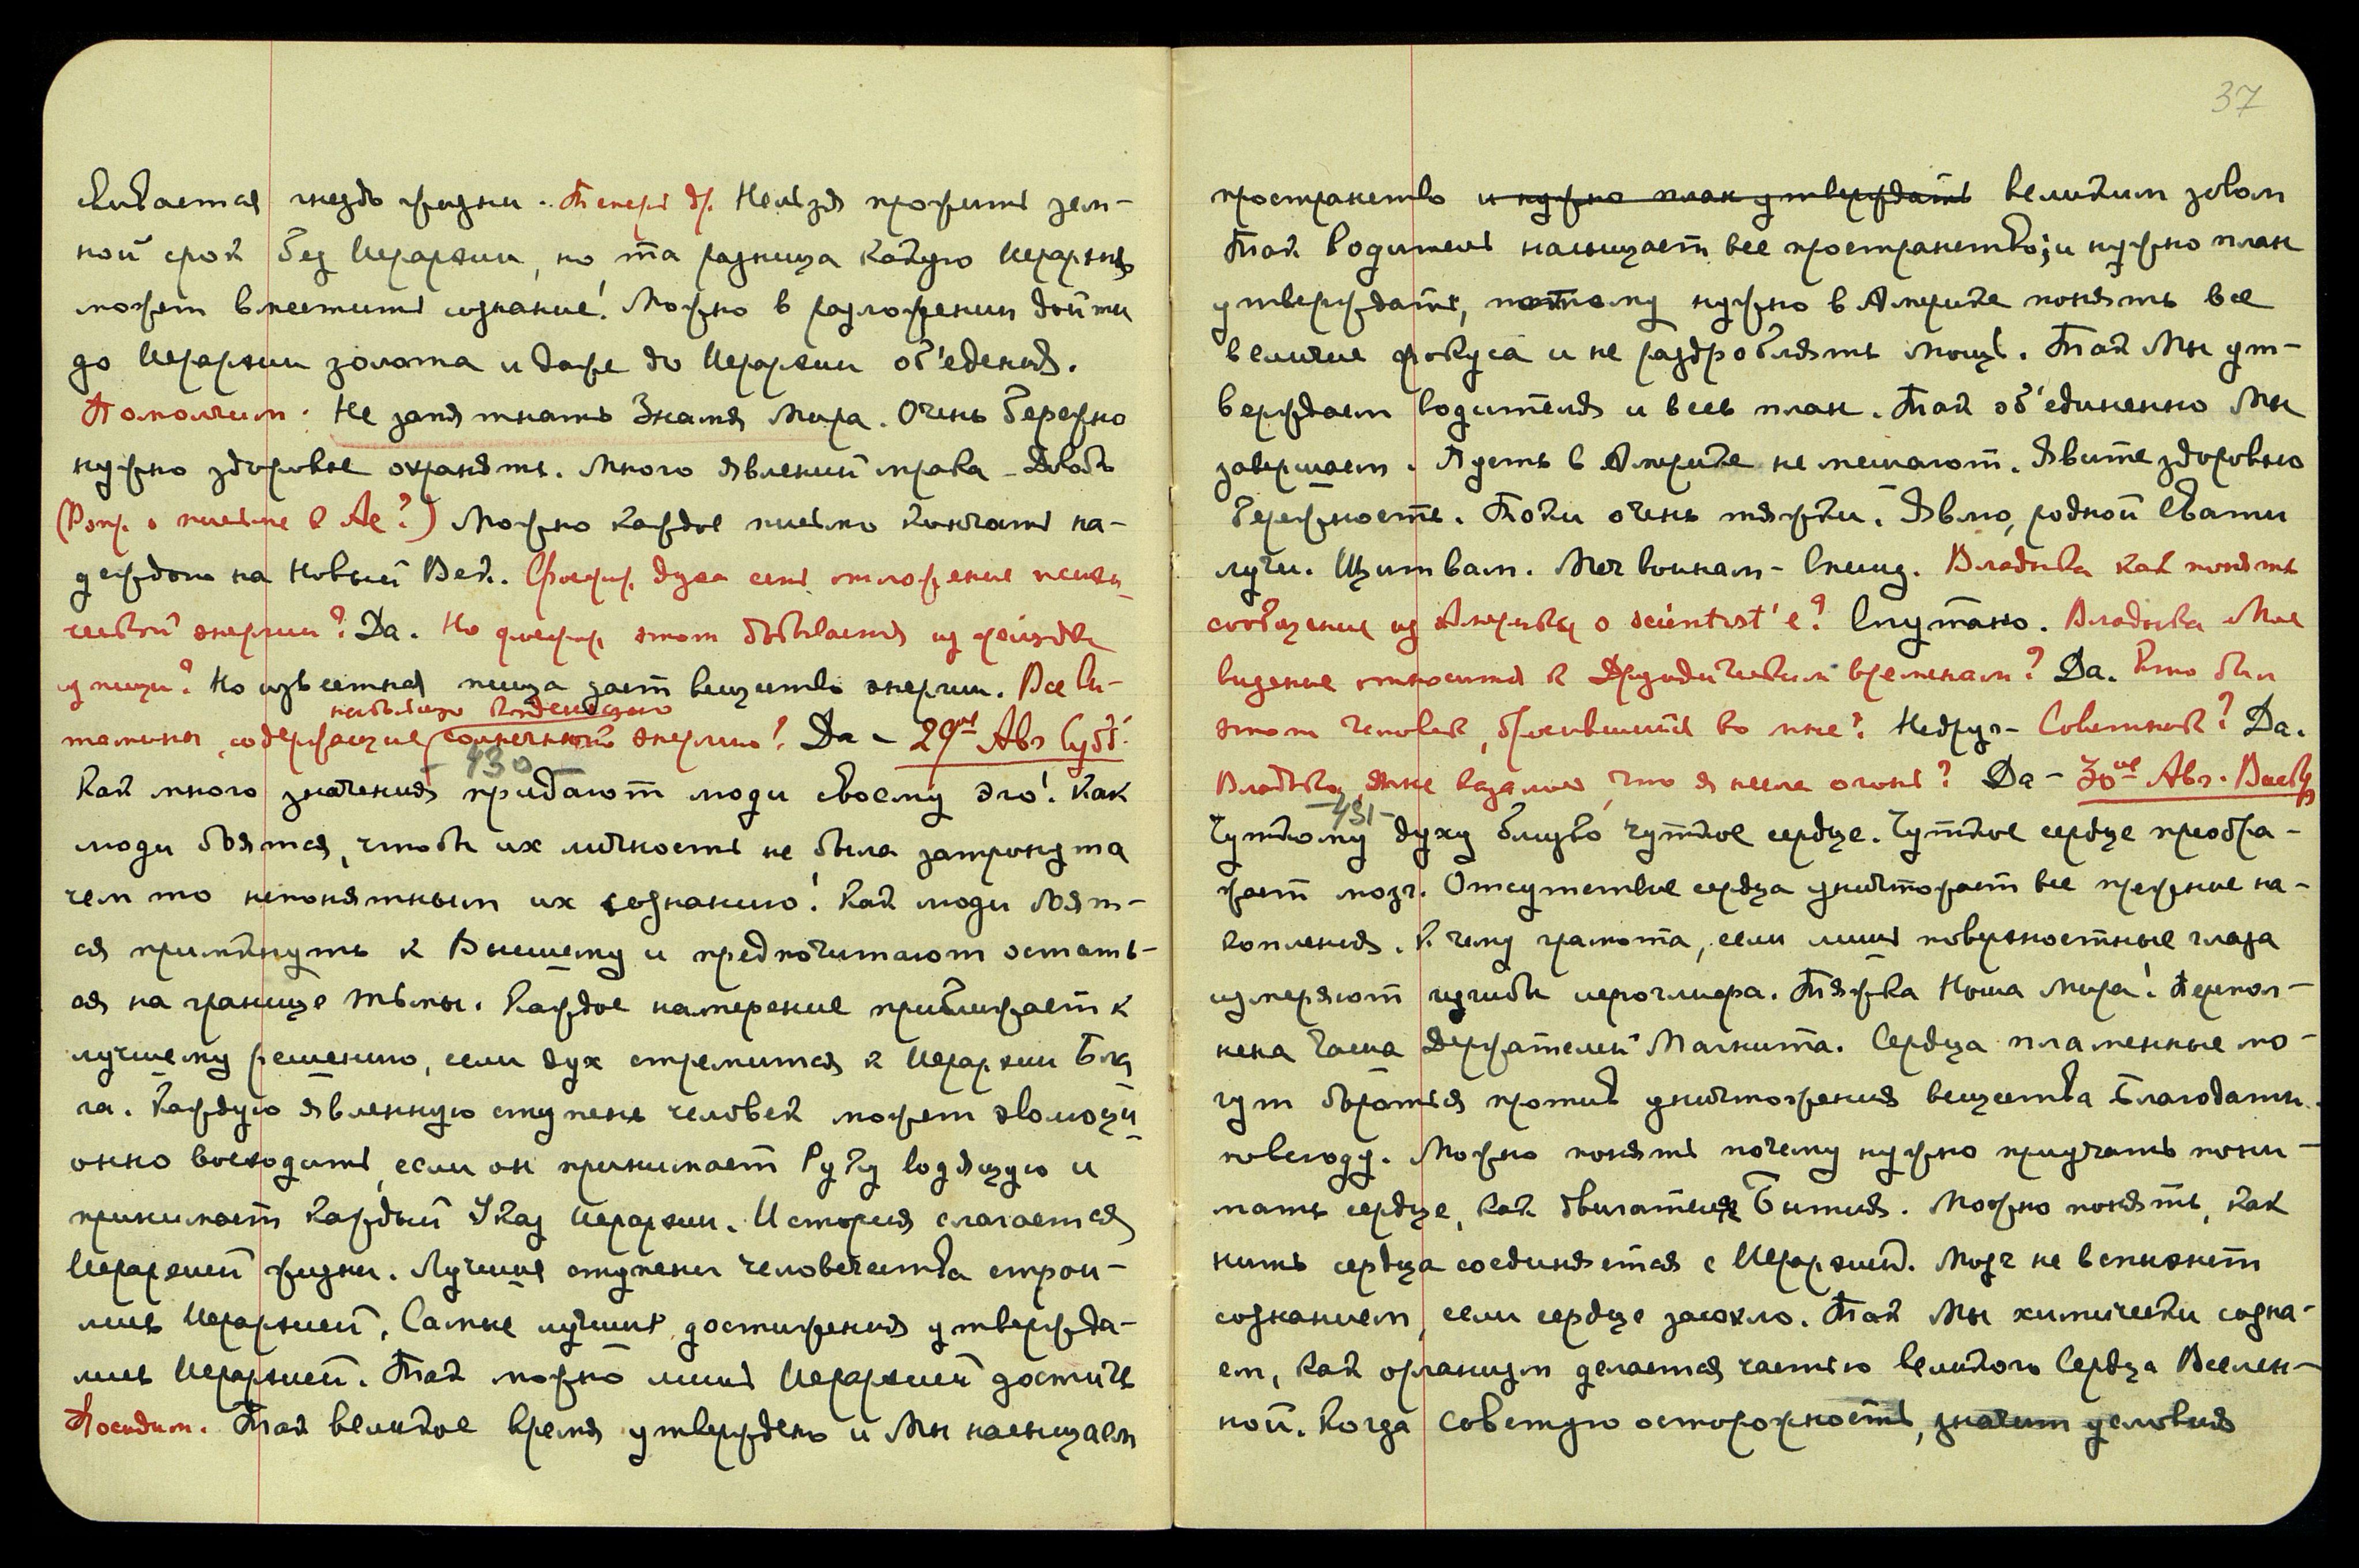 свивается гнездо жизни. Теперь др. Нельзя прожить зем-
ной срок без Иерархии, но та разница какую Иерархию
может вместить сознание! Можно в разложении дойти
до Иерархии золота и даже до Иерархии об'едения.
Помолчим. Не запятнать Знамя Мира. Очень бережно
нужно здоровье охранять. Много явлений мрака –
о письме в Ам?) Можно каждое письмо кончать на-
деждою на Новый Век. Фосфор духа есть отложение психи-
ческой энергии? Да. Но фосфор этот добывается из
из пищи? Но известная пища дает вещество энергии. Все ви-
наибольшую
тамины, содержащие солнечную энергию? Да – 29ое Авг Субб.
– 430 –
Как много значения придают люди своему эго! Как
люди боятся, чтобы их личность не была затронута
чем то непонятным их сознанию! Как люди боят-
ся примкнуть к Высшему и предпочитают остать-
ся на границе тьмы. Каждое намерение приближает к
лучшему решению, если дух стремится к Иерархии Бла
га. Каждую явленную ступень человек может эволюци
онно восходить, если он принимает Руку водящую и
принимает каждый Указ Иерархии. История слагается
Иерархией жизни. Лучшие ступени человечества строи-
лись Иерархией. Самые лучшие достижения утвержда-
лись Иерархией. Так можно лишь Иерархией достичь
Посидим. Так великое время утверждено и Мы насыщаем
37
пространство и нужно план утверждать великим зовом
Так Водитель насыщает все пространство; и нужно план
утверждать, потому нужно в Америке понять все
величие фокуса и не раздроблять мощь. Так Мы ут-
верждаем водителя и весь план. Так об'единенно Мы
завершаем. Пусть в Америке не мешают. Явите здоровью
бережность. Токи очень тяжки. Явлю, родной Свати
лучи. Щит вам. Меч воинам – Спешу. Владыка как понять
сообщение из Америки о scientist'е? Спутано. Владыка Мое
видение относится к Друидическим временам? Да. Кто был
этот человек, бросившийся ко мне? Недруг – Советник? Да.
Владыка, мне казалось, что я несла огонь? Да – 30ое Авг. Воскр
– 431 –
Чуткому духу близко чуткое сердце. Чуткое сердце преобра-
жает мозг. Отсутствие сердца уничтожает все прежние на-
копления. К чему грамота, если лишь поверхностные глаза
измеряют изгибы иероглифа. Тяжка Ноша Мира! Перепол-
нена Чаша Держателей Магнита. Сердца пламенные мо-
гут бороться против уничтожения вещества Благодати
повсюду. Можно понять почему нужно приучать пони-
мать сердце, как двигателя Бытия. Можно понять, как
нить сердца соединяется с Иерархией. Мозг не вспыхнет
сознанием, если сердце засохло. Так Мы химически созна-
ем, как организм делается частью великого Сердца Вселен-
ной. Когда советую осторожность, значит условия